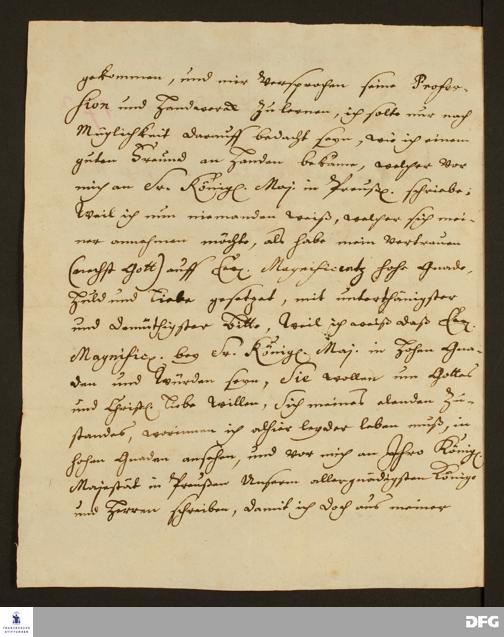 gekommen, und mir versprochen seine Profes-
sion und Handwerck zu lernen, ich solte nur nach
Müglichkeit darauff bedacht seyn, wie ich einen
guten Freund an Handen bekäme, welcher vor
mich an Sr. Königl. Maj. in Preuß. schriebe;
Weil ich nun niemanden weiß, welcher sich mei-
ner annehmen möchte, als habe mein Vertrauen
(nechst Gott) auff Ew. Magnificentz hohe Gnade,
Huld und Liebe gesetzet, mit unterthänigster
und demüthigster Bitte, Weil ich weiß daß Ew.
Magnific. bey Sr. Königl. Maj. in hohen Gna-
den und Würden seyn, Sie wollen um Gottes
und Christl. Liebe willen, sich meines elenden Zu-
standes, worinnen ich alhier leyder leben muß, in
hohen Gnaden ansehen, und vor mich an Ihro Königl.
Majestät in Preußen Unserm allergnädigsten Könige
und Herren schreiben, damit ich doch aus meiner
FRANCKESCHE
STIFTUNGEN
DFG